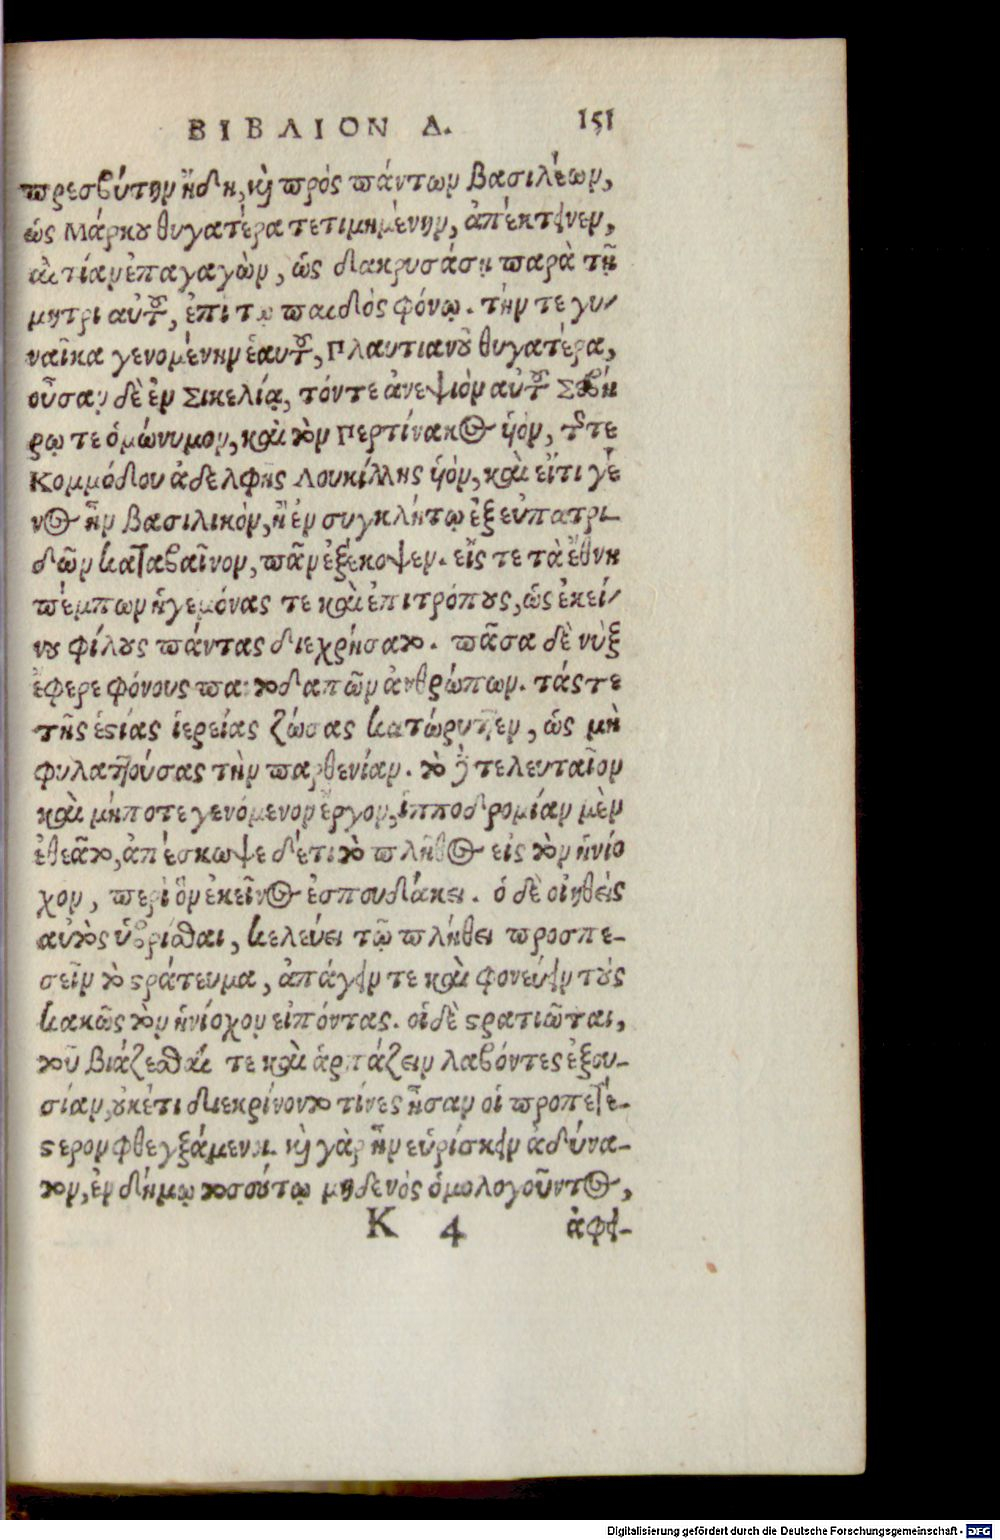 ΒΙΒΛΙΟΝ Δ. 151
πρεσβύτην ἤδη, καὶ πρὸς πάντων βασιλέων,
ὡς Μάρκου θυγατέρα τετιμημένην, ἀπέκτεινεν,
αἰτίαν ἐπαγαγὼν, ὡς δακρυσάσῃ παρὰ τῇ
μητρὶ αὐτοῦ, ἐπὶ τῷ παιδὸς φόνῳ. τήν τε γυ-
ναῖκα γενομένην ἑαυτοῦ, Πλαυτιανοῦ θυγατέρα,
οὖσαν δὲ ἐν Σικελίᾳ, τόν τε ἀνεψιὸν αὐτοῦ Σεβή
ρῳ τε ὁμώνυμον, καὶ τὸν Περτίνακος υἱὸν, τῆς τε
Κομμόδου ἀδελφῆς Λουκίλλης υἱὸν, καὶ εἴ τι γέ
νος ἦν βασιλικὸν, ἢ ἐν συγκλήτῳ ἐξ εὐπατρι-
δῶν καταβαῖνον, πᾶν ἐξέκοψεν. εἴς τε τὰ ἔθνη
πέμπων ἡγεμόνας τε καὶ ἐπιτρόπους, ὡς ἐκεί-
νου φίλους πάντας διεχρήσατο. πᾶσα δὲ νὺξ
ἔφερε φόνους παντοδαπῶν ἀνθρώπων. τάς τε
τῆς ἑστίας ἱερείας ζώσας κατώρυττεν, ὡς μὴ
φυλαττούσας τὴν παρθενίαν. τὸ δὲ τελευταῖον
καὶ μήποτε γενόμενον ἔργον, ἱπποδρομίαν μὲν
ἐθεᾶτο, ἀπέσκωψε δέ τι τὸ πλῆθος εἰς τὸν ἡνίο
χον, περὶ ὃν ἐκεῖνος ἐσπουδάκει. ὁ δὲ οἰηθεὶς
αὐτὸς ὑβρίσθαι, κελεύει τῷ πλήθει προσπε-
σεῖν τὸ στράτευμα, ἀπάγειν τε καὶ φονεύειν τοὺς
κακῶς τὸν ἡνίοχον εἰπόντας. οἱ δὲ στρατιῶται,
τοῦ βιάζεσθαί τε καὶ ἁρπάζειν λαβόντες ἐξου-
σίαν, οὐκέτι διεκρίνοντο τίνες ἦσαν οἱ προπετέ-
στερον φθεγξάμενοι. καὶ γὰρ ἦν εὑρίσκειν ἀδύνα-
τον, ἐν δήμῳ τοσούτῳ μηδενὸς ὁμολογοῦντος,
K 4 ἀφει-
Digitalisierung gefördert durch die Deutsche Forschungsgemeinschaft - DFG